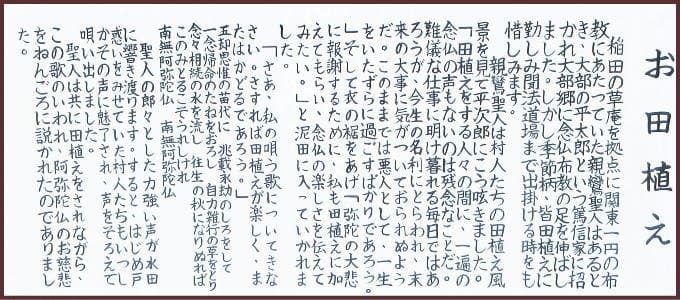 お田植え
稲田の草庵を拠点に関東一円の布
教にあたっていた親鸞聖人はあると
き、大部の平太郎という篤信家に招
かれ大部郷に念仏布教の足を伸ばし
ました。しかし季節柄、皆田植えに
勤しみ聞法道場まで出掛ける時をも
惜しみます。
親鸞聖人は村人たちの田植え風
景を見て平次郎にこう呟きました。
「田植えをする人々の間に、一遍の
念仏の声もないのは残念なことだ。
難儀な仕事に明け暮れる毎日ではあ
ろうが、今生の名利にとらわれ、末
来の大事に気がついておられぬよう
だ。このままでは悪人として、一生
をいたずらに過ごすばかりであろう。
」そして衣の裾をあげ「弥陀の大悲
に報謝するために、私も田植えに加
えてもらい、念仏の楽しさを伝えて
みたい。」と泥田に入っていかれま
した。
「さあ、私の唄う歌についてきな
さい。さすれば田植えが楽しく、ま
たはかどるであろう。」
五劫思惟の苗代に 兆載永劫のしろをして
一念帰命のたねをおろし 自力雑行の草をとり
念々相続の水を流し 往生の秋になりぬれば
このみとるこそうれしけれ
南無阿弥陀仏 南無阿弥陀仏
聖人の朗々とした力強い声が水田
に響き渡ります。すると、はじめ戸
惑いをみせていた村人たちもいつし
かその声に魅了され、声をそろえて
唄い出しました。
聖人は共に田植えをされながら、
この歌のいわれ、阿弥陀仏のお慈悲
をねんごろに説かれたのでありまし
た。